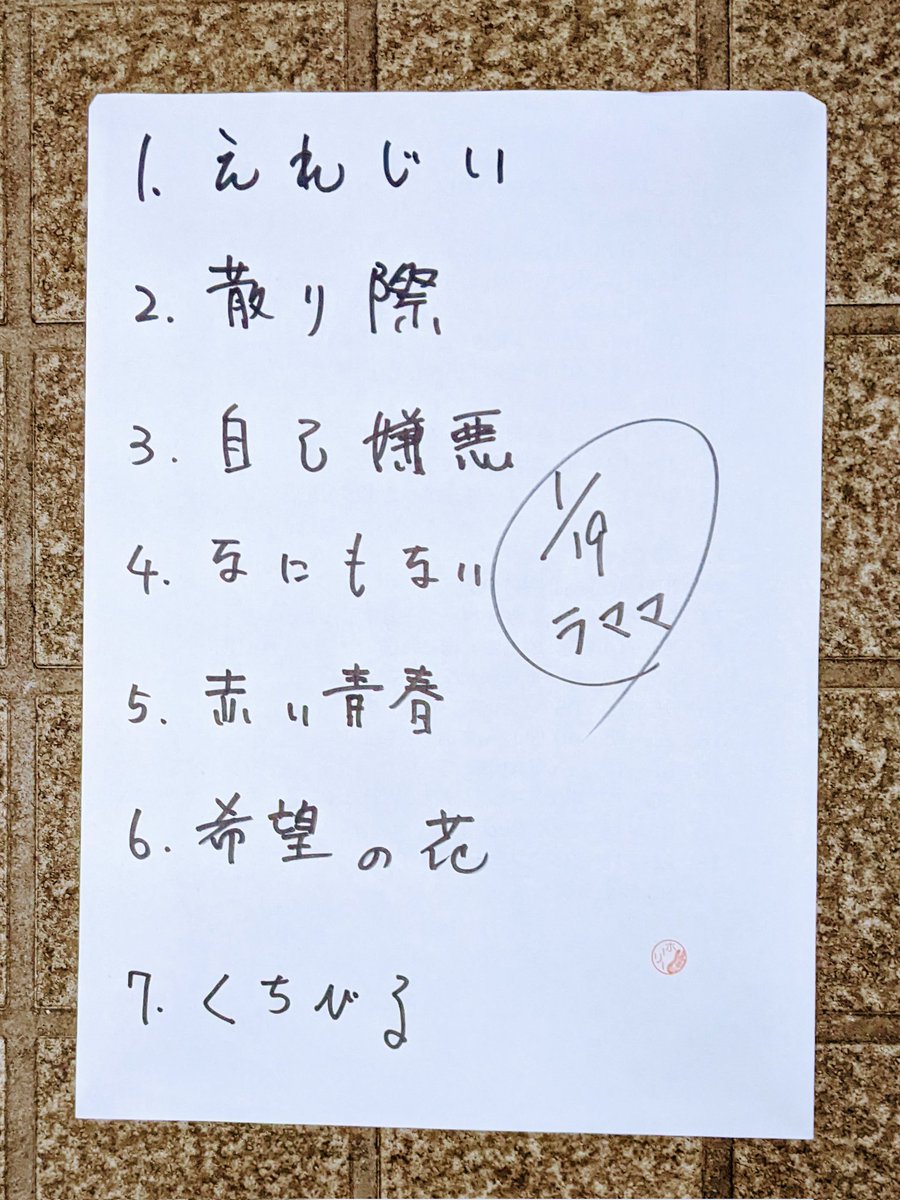 1. えれじい
2. 散り際
3. 自己嫌悪
4. なにもない
5. 赤い青春
6. 希望の花
7. くちびる
1/19
ラママ